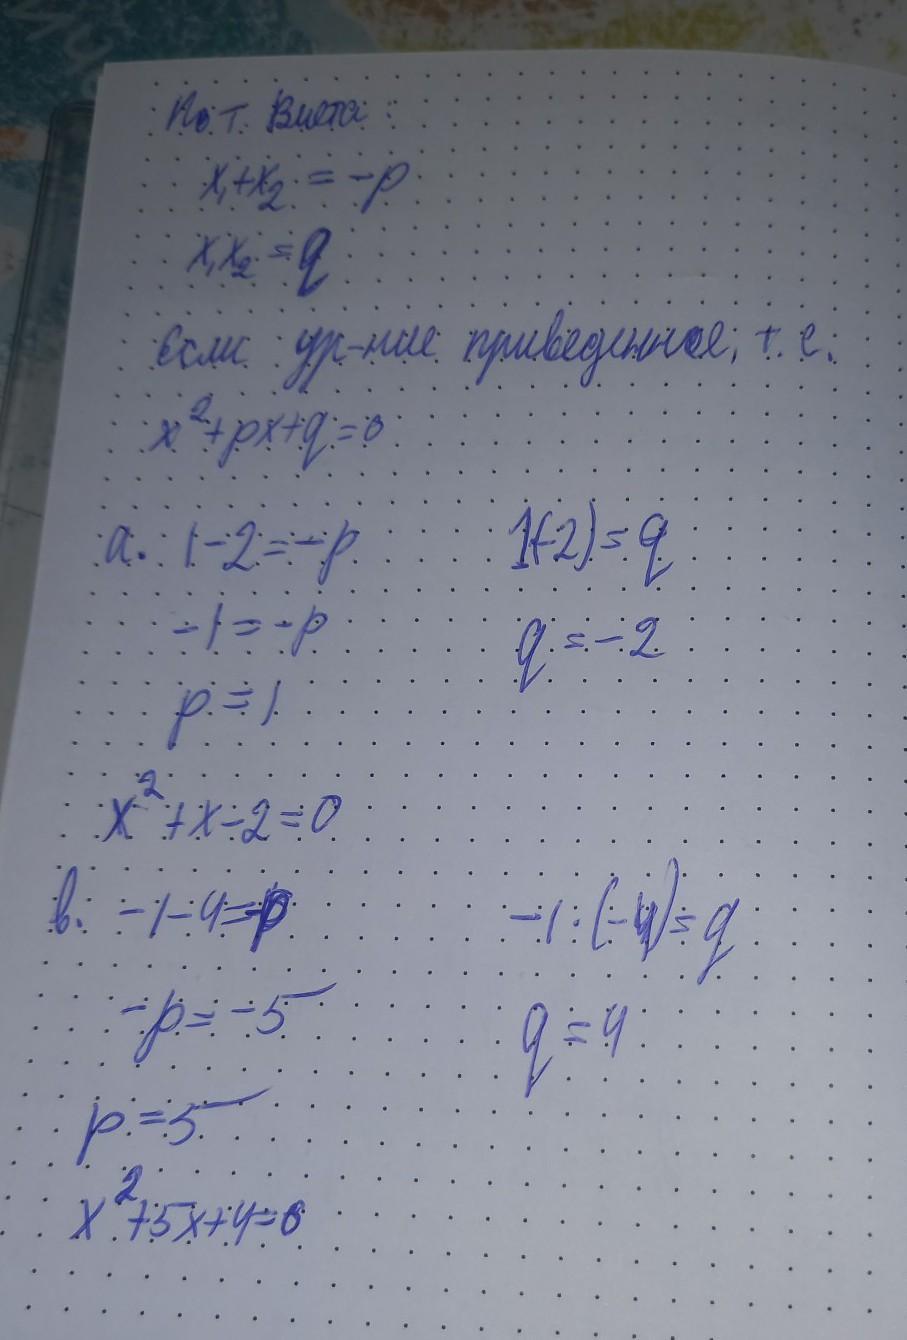 По т. Виета:
x₁+x₂ = -p
x₁x₂ = q
Если ур-ние приведенное, т. е.
x²+px+q=0
а. 1-2=-p 1(-2)=q
-1=-p q=-2
p=1
x²+x-2=0
в. -1-4=-p -1·(-4)=q
-p=-5 q=4
p=5
x²+5x+4=0